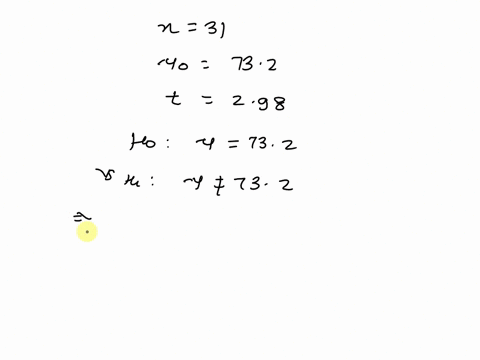 n = 31
μ0 = 73.2
t = 2.98
H0 : μ = 73.2
vs H1 : μ ≠ 73.2
⇒